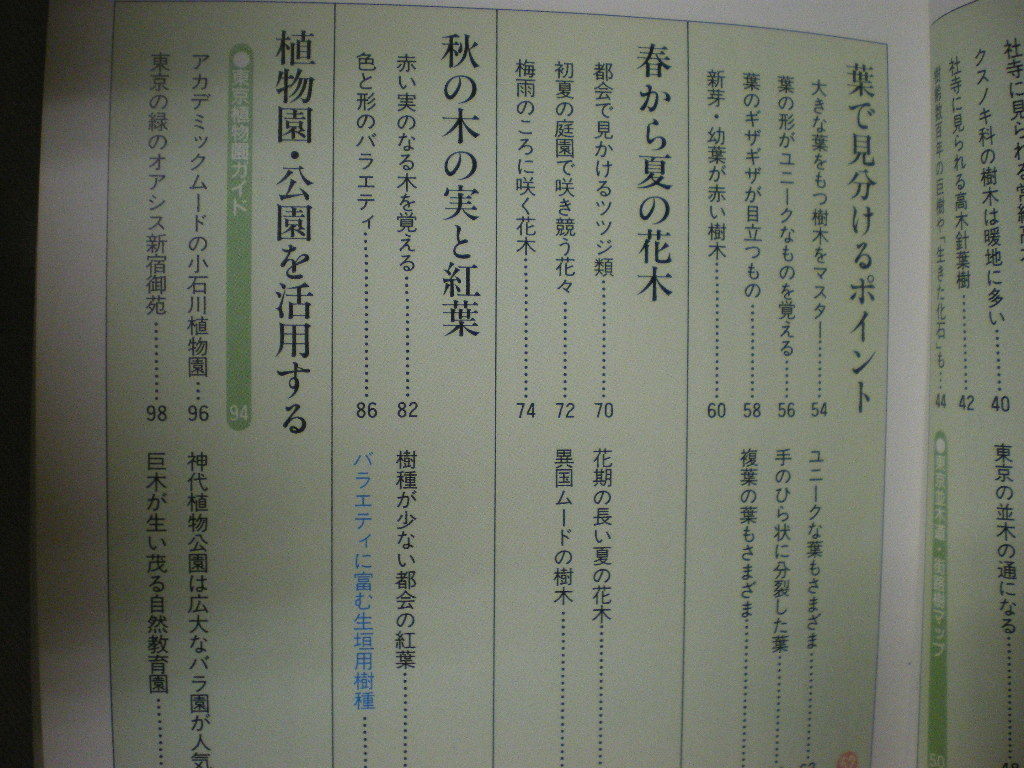 クスノキ科の樹木は暖地に多い……40
社寺に見られる高木針葉樹………42
44
東京の並木の通になる
葉で見分けるポイント
大きな葉をもつ樹木をマスター……54
葉の形がユニークなものを覚える……56
葉のギザギザが目立つもの………58
新芽・幼葉が赤い樹木…………60
ユニークな葉もさまざま…………
手のひら状に分裂した葉…………
複葉の葉もさまざま…………
春から夏の花木
都会で見かけるツツジ類…………70
初夏の庭園で咲き競う花々………72
梅雨のころに咲く花木…………74
花期の長い夏の花木…………
異国ムードの樹木…………
秋の木の実と紅葉
赤い実のなる木を覚える…………82
色と形のバラエティ…………86
樹種が少ない都会の紅葉………
バラエティに富む生垣用樹種……
植物園・公園を活用する
●東京植物園ガイド 94
アカデミックムードの小石川植物園…96
東京の緑のオアシス新宿御苑………98
神代植物公園は広大なバラ園が人気
巨木が生い茂る自然教育園……